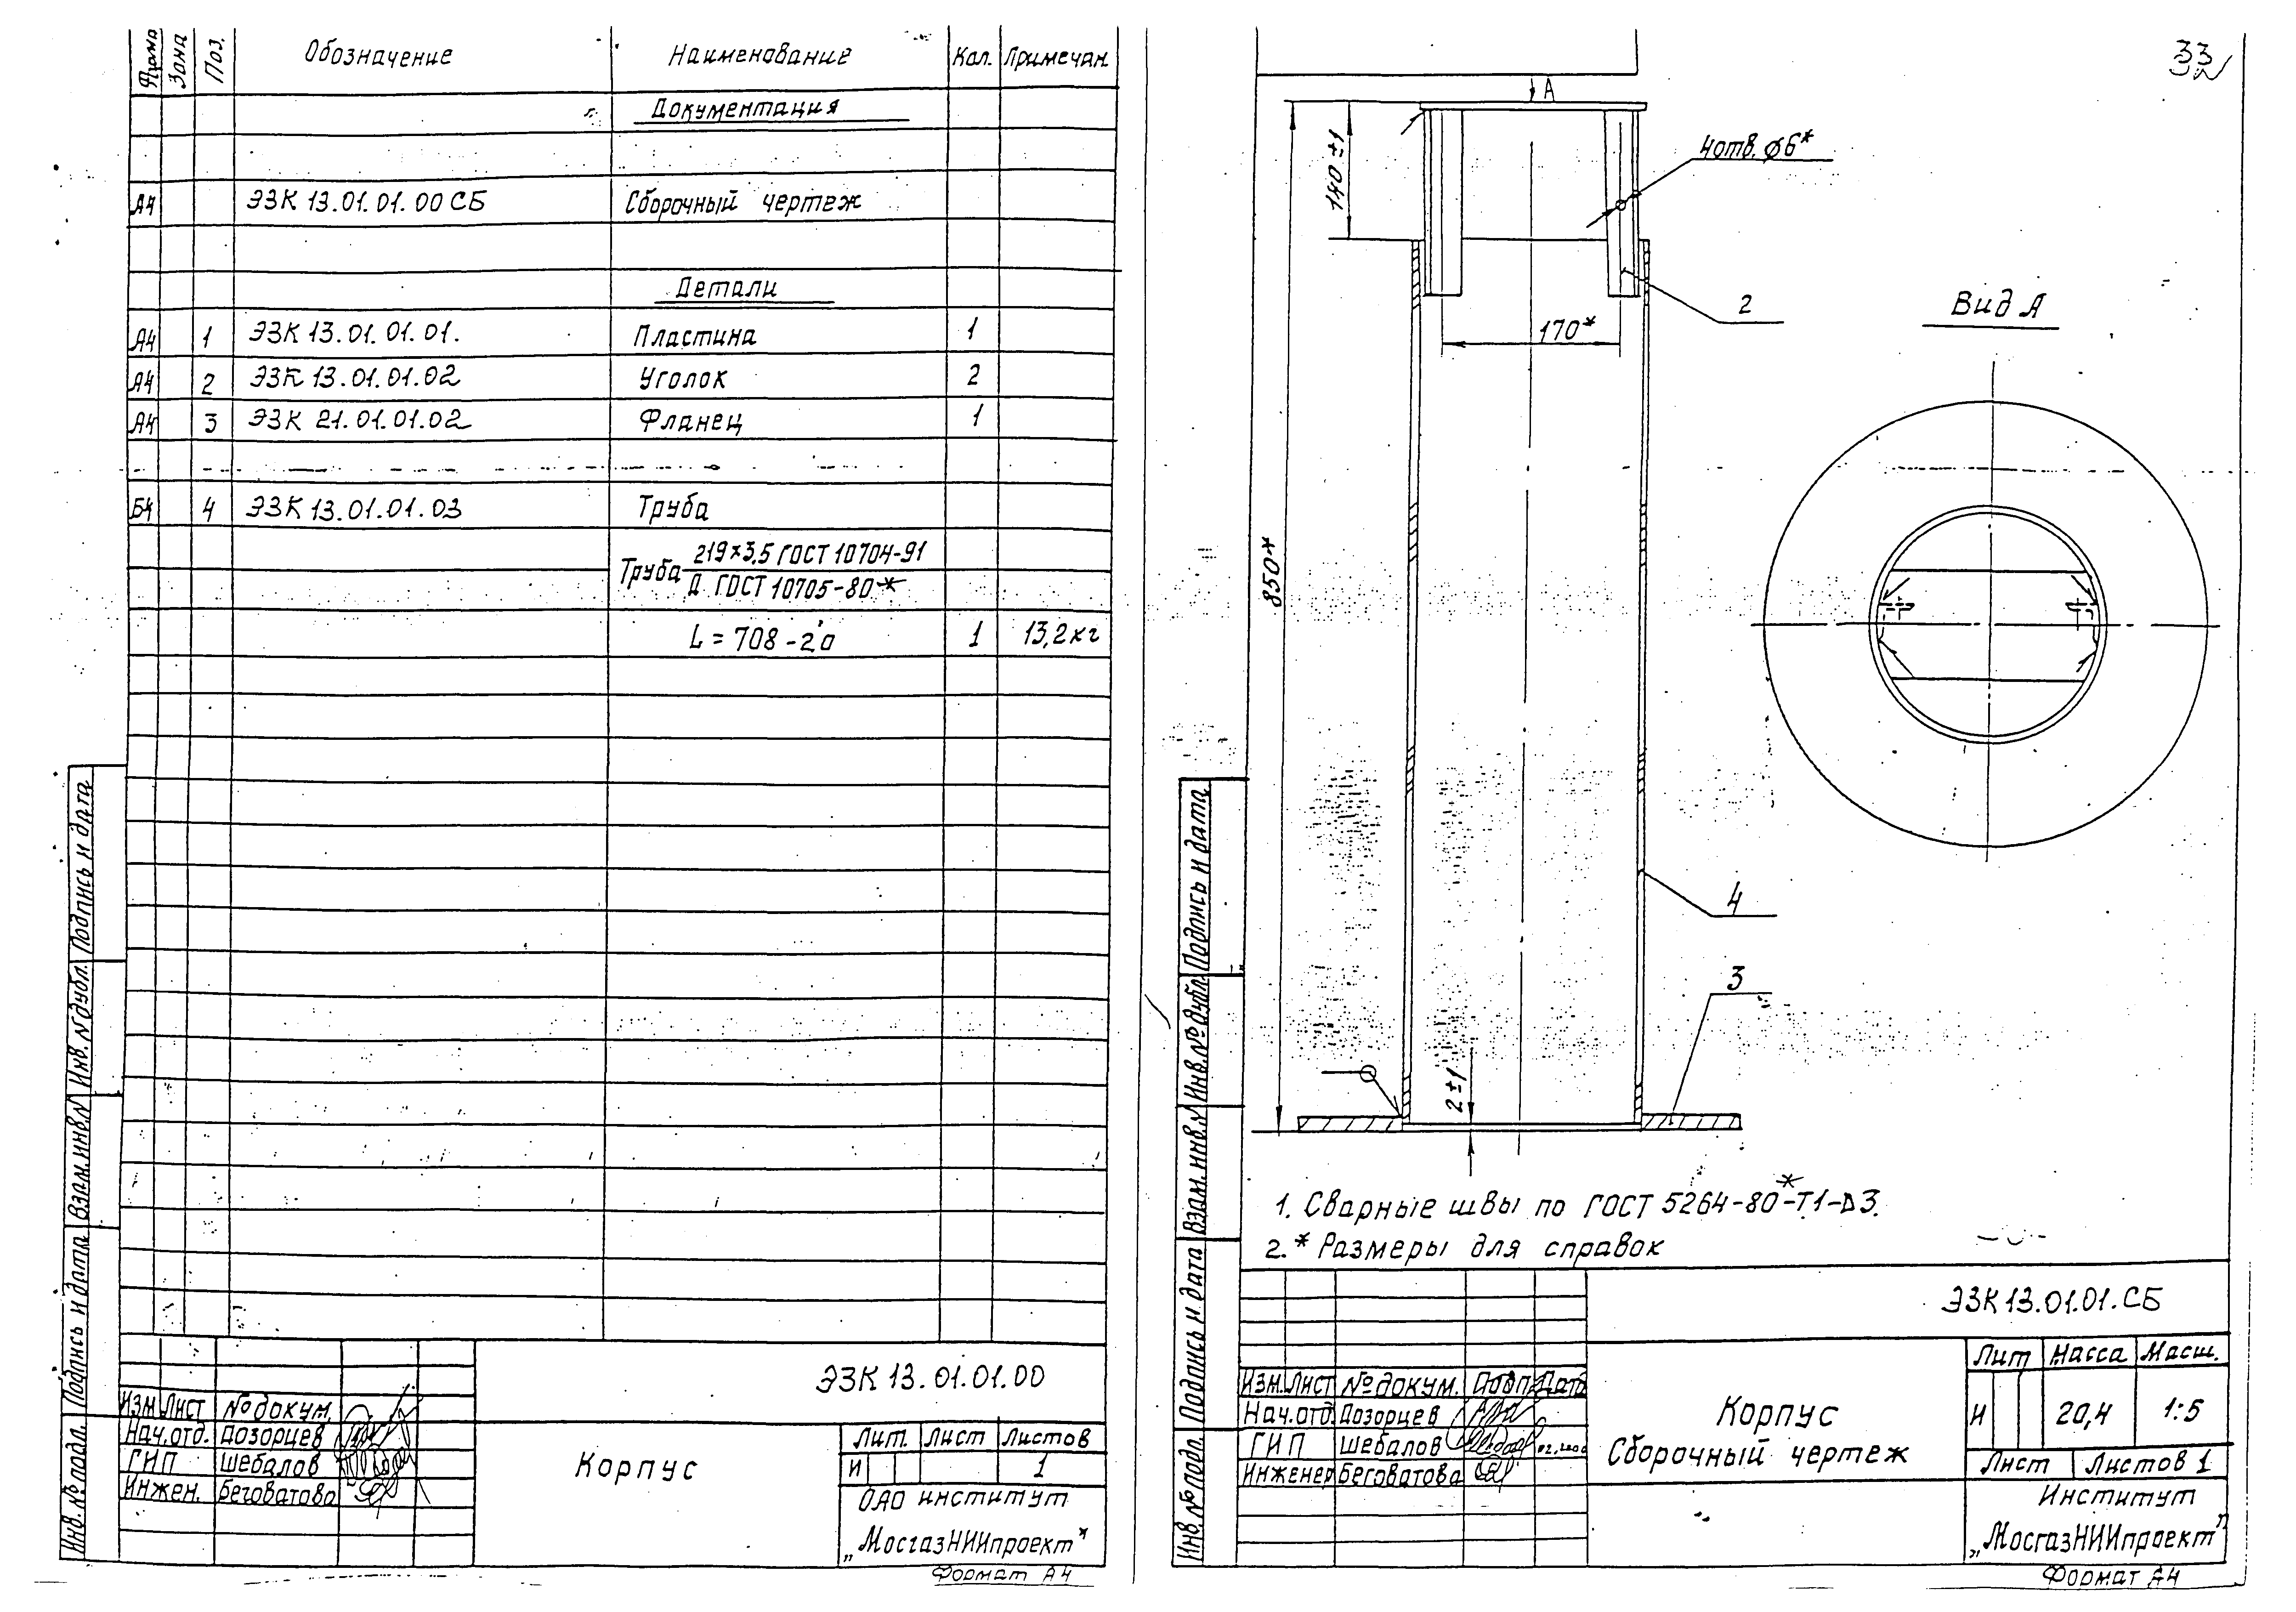 Форма Зона Поз. Обозначение Наименование Кол. Примечан.
Документация
А4 ЭЗК 13.01.01.00 СБ Сборочный чертеж
Детали
А4 1 ЭЗК 13.01.01.01. Пластина 1
А4 2 ЭЗК 13.01.01.02 Уголок 2
А4 3 ЭЗК 21.01.01.02 Фланец 1
Б4 4 ЭЗК 13.01.01.03 Труба
219×3,5 ГОСТ 10704-91
Труба
Д ГОСТ 10705-80*
L = 708 -2,0 1 13,2 кг
Подпись и дата
Инв. № дубл.
Взам. инв. №
Подпись и дата
Инв. № подл.
ЭЗК 13.01.01.00
Изм. Лист № докум.
Нач. отд. Дозорцев
ГИП Шебалов
Инжен. Беговатова
Корпус
Лит. Лист Листов
И 1
ОАО институт
„МосгазНИИпроект"
Формат А4
33
А
140±1
4 отв. ⌀6*
2
170*
Вид А
850*
4
3
2±1
1. Сварные швы по ГОСТ 5264-80*-Т1-⊿3.
2.* Размеры для справок
Подпись и дата
Инв. № дубл.
Взам. инв. №
Подпись и дата
Инв. № подл.
ЭЗК 13.01.01.СБ
Изм. Лист № докум. Подп. Дата
Нач. отд. Дозорцев
ГИП Шебалов
Инженер Беговатова
Корпус
Сборочный чертеж
Лит Масса Масш.
И 20,4 1:5
Лист Листов 1
Институт
„МосгазНИИпроект"
Формат А4